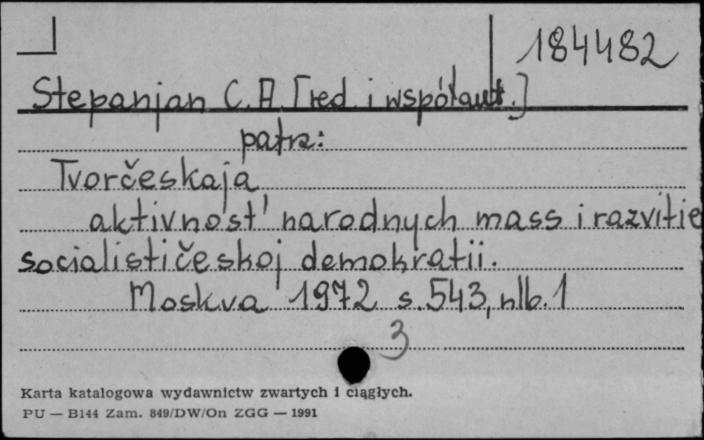 184482
Stepanjan C.A. [red. i współaut.]
patrz:
Tvorčeskaja
aktivnost' narodnych mass i razvitie
socialističeskoj demokratii.
Moskva 1972 s. 543, nlb. 1
3
Karta katalogowa wydawnictw zwartych i ciągłych.
PU — B144 Zam. 849/DW/On ZGG — 1991